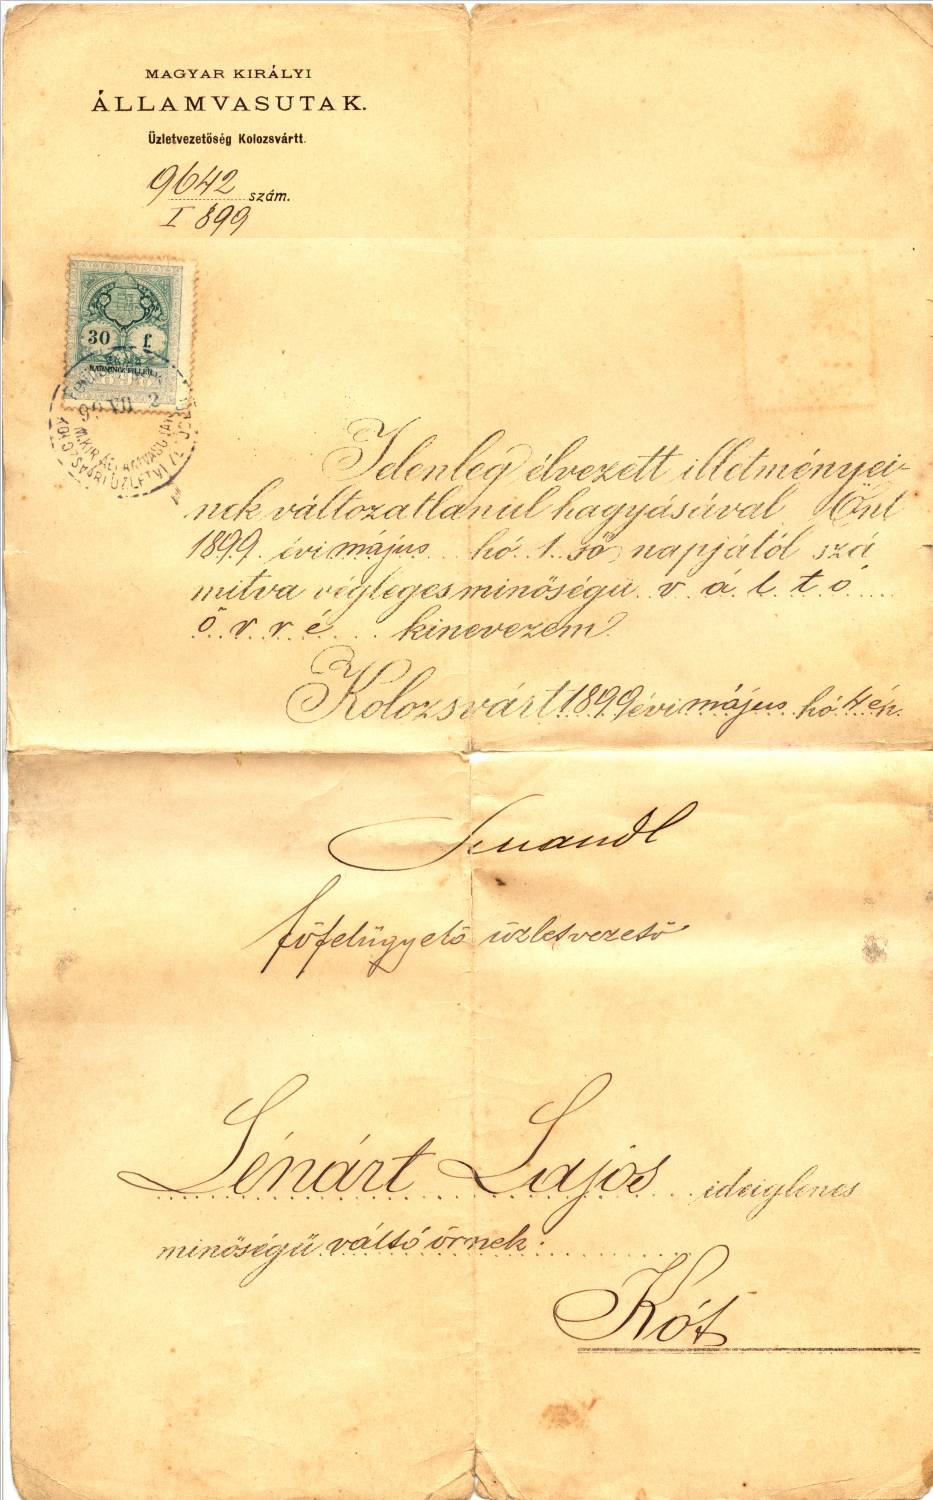 MAGYAR KIRÁLYI
ÁLLAMVASUTAK.
Üzletvezetőség Kolozsvártt.
9642 szám.
I 899
30 f.
HARMINCZ FILLÉR
898
99 VII 2
M. KIR. ÁLLAMVASUTAK
KOLOZSVÁRI ÜZLETV
Jelenleg élvezett illetményei-
nek változatlanul hagyásával Önt
1899. évi május hó 1.ső napjától szá
mitva végleges minőségű v á l t ó
ő r r é kinevezem.
Kolozsvárt 1899 évi május hó 4én.
főfelügyelő üzletvezető
Lénárt Lajos ideiglenes
minőségű váltó őrnek.
Kót